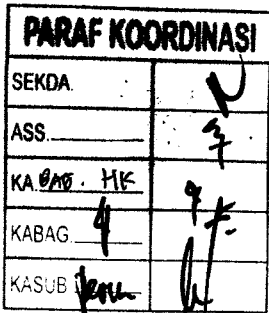 PARAF KOORDINASI
SEKDA.
ASS.
KA. BAG. HK
KABAG.
KASUB